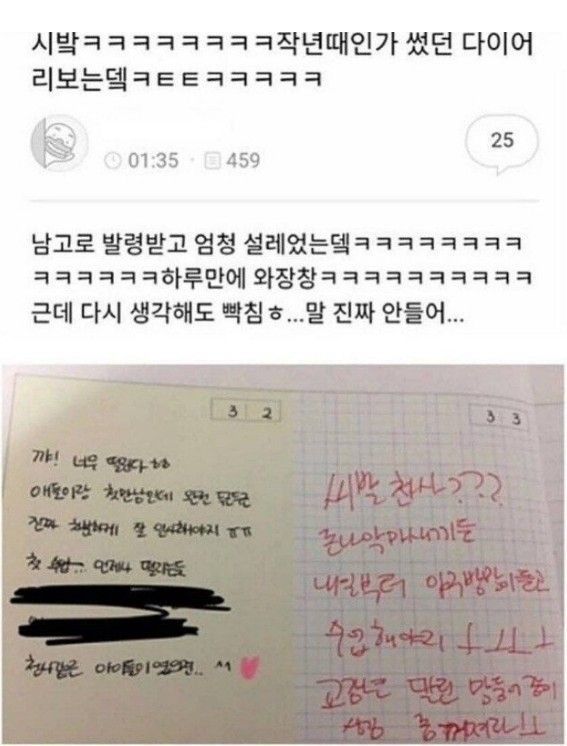 시밬ㅋㅋㅋㅋㅋㅋㅋㅋ작년때인가 썼던 다이어
리보는뎈ㅋㅌㅌㅋㅋㅋㅋㅋ
25
01:35 · 459
남고로 발령받고 엄청 설레었는뎈ㅋㅋㅋㅋㅋㅋㅋ
ㅋㅋㅋㅋㅋㅋ하루만에 와장창ㅋㅋㅋㅋㅋㅋㅋㅋㅋㅋ
근데 다시 생각해도 빡침ㅎ...말 진짜 안들어...
3 2
꺄! 너무 떨린다 ㅎㅎ
애들이랑 첫만남인데 완전 두근두근
진짜 친절하게 잘 인사해야지 ㅠㅠ
첫 수업... 언제나 떨리는듯
천사같은 아이들이였으면.. ^^
3 3
씨발 천사???
존나 악마새끼들
내일부터 야구방망이들고
수업해야지
교장은 말린